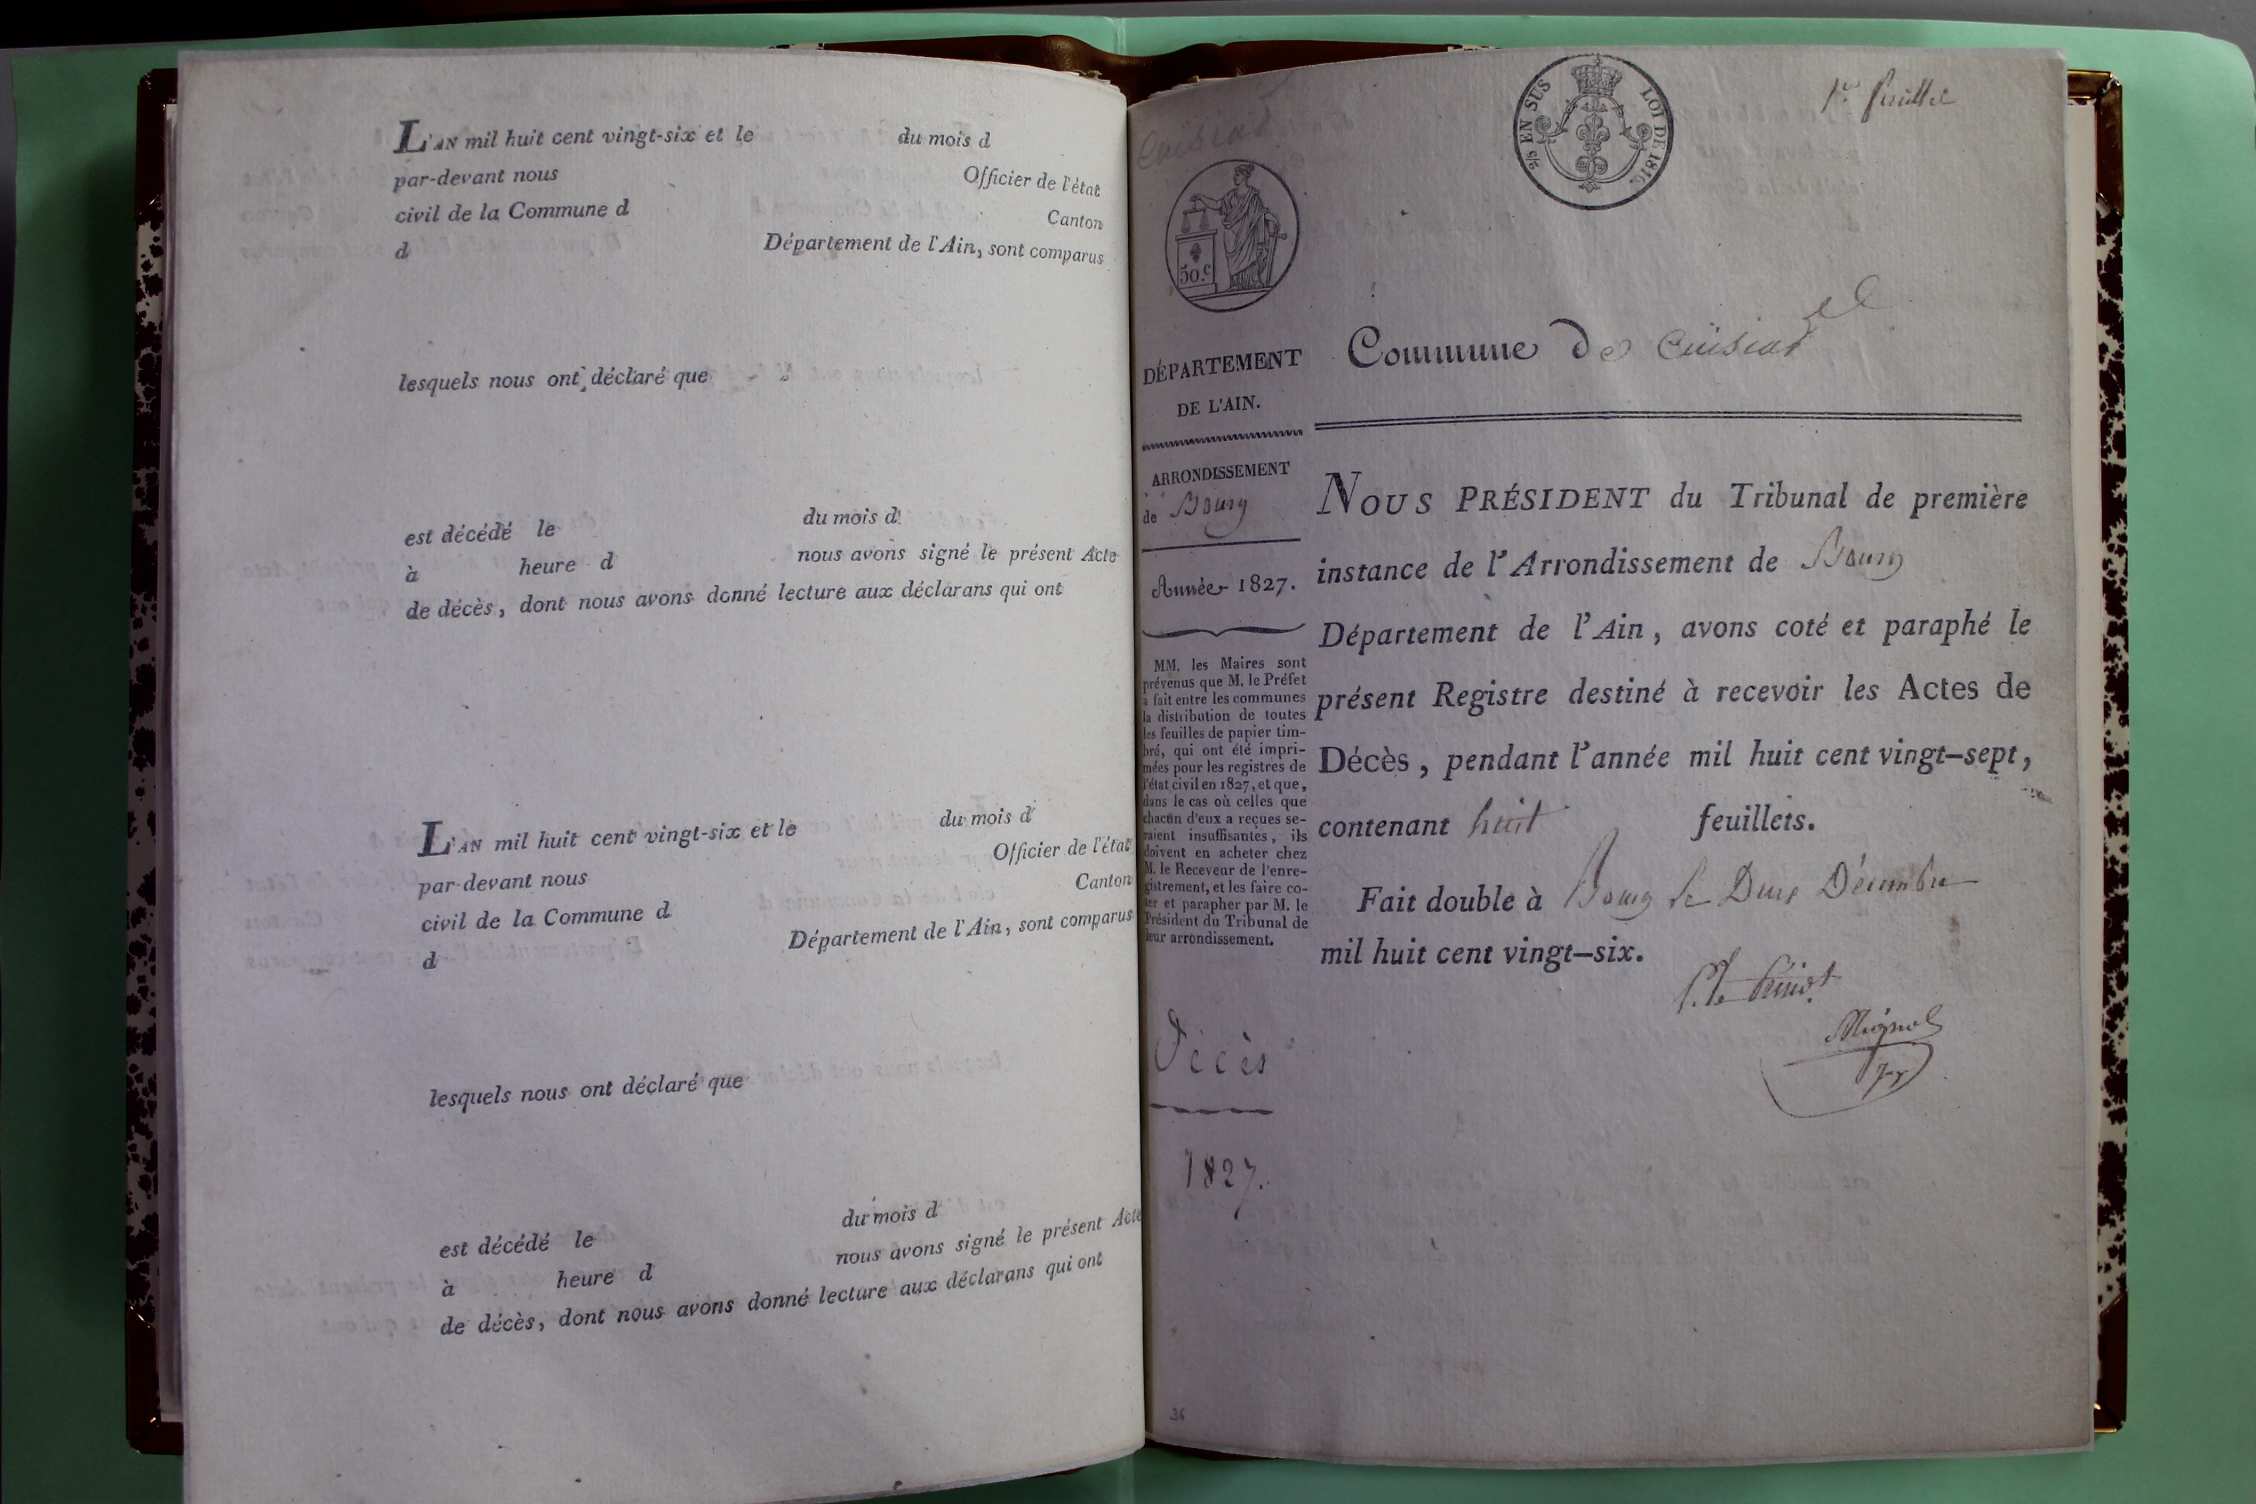 L'AN mil huit cent vingt-six et le du mois d
par-devant nous Officier de l'état
civil de la Commune d Canton
d Département de l'Ain, sont comparus
lesquels nous ont déclaré que
est décédé le du mois d
à heure d nous avons signé le présent Acte
de décès, dont nous avons donné lecture aux déclarans qui ont
L'AN mil huit cent vingt-six et le du mois d
par-devant nous Officier de l'état
civil de la Commune d Canton
d Département de l'Ain, sont comparus
lesquels nous ont déclaré que
est décédé le du mois d
à heure d nous avons signé le présent Acte
de décès, dont nous avons donné lecture aux déclarans qui ont
Cuisiat
EN SUS LOI DE 1816.
1er feuillet
50.c
DÉPARTEMENT
DE L'AIN.
ARRONDISSEMENT
de Bourg
Année 1827.
MM. les Maires sont
prévenus que M. le Préfet
a fait entre les communes
la distribution de toutes
les feuilles de papier tim-
bré, qui ont été impri-
mées pour les registres de
l'état civil en 1827, et que,
dans le cas où celles que
chacun d'eux a reçues se-
raient insuffisantes, ils
doivent en acheter chez
M. le Receveur de l'enre-
gistrement, et les faire co-
ter et parapher par M. le
Président du Tribunal de
leur arrondissement.
Décès
1827.
36
Commune de Cuisiat
NOUS PRÉSIDENT du Tribunal de première
instance de l'Arrondissement de Bourg
Département de l'Ain, avons coté et paraphé le
présent Registre destiné à recevoir les Actes de
Décès, pendant l'année mil huit cent vingt-sept,
contenant huit feuillets.
Fait double à Bourg le Deux Décembre
mil huit cent vingt-six.